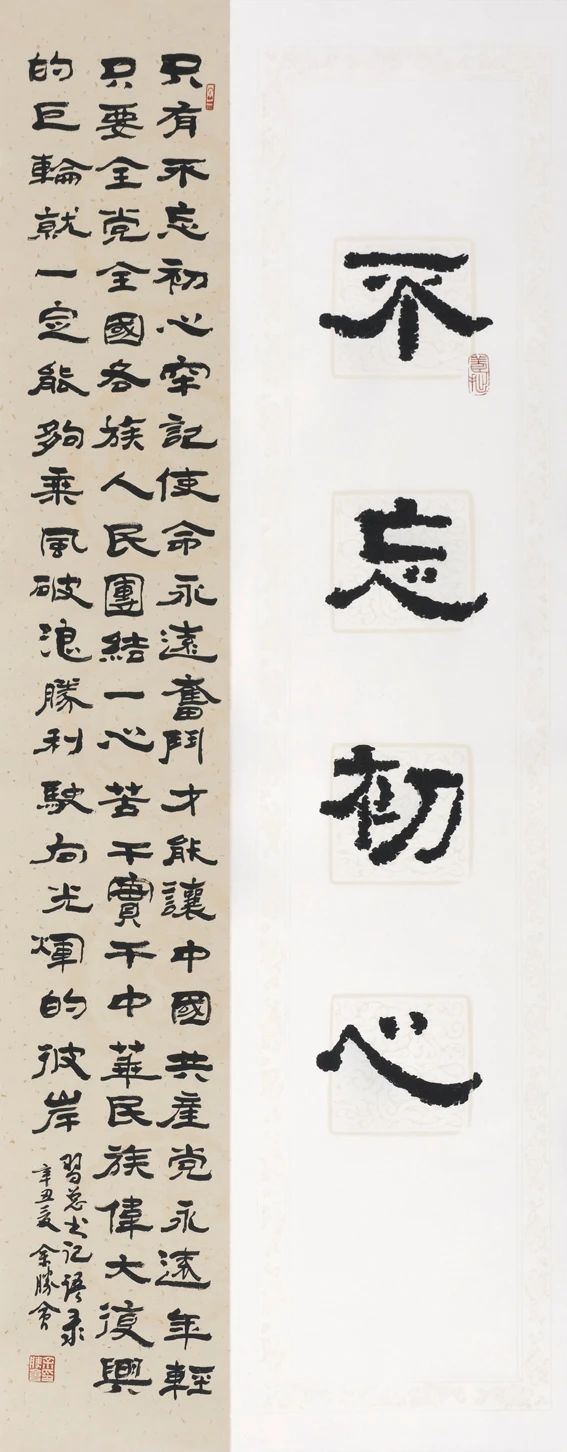 不忘初心
只有不忘初心牢記使命永遠奮鬥才能讓中國共產党永遠年輕
只要全党全國各族人民團結一心苦干實干中華民族偉大復興
的巨輪就一定能夠乘風破浪勝利駛向光輝的彼岸
習总书记語录
辛丑夏余勝會